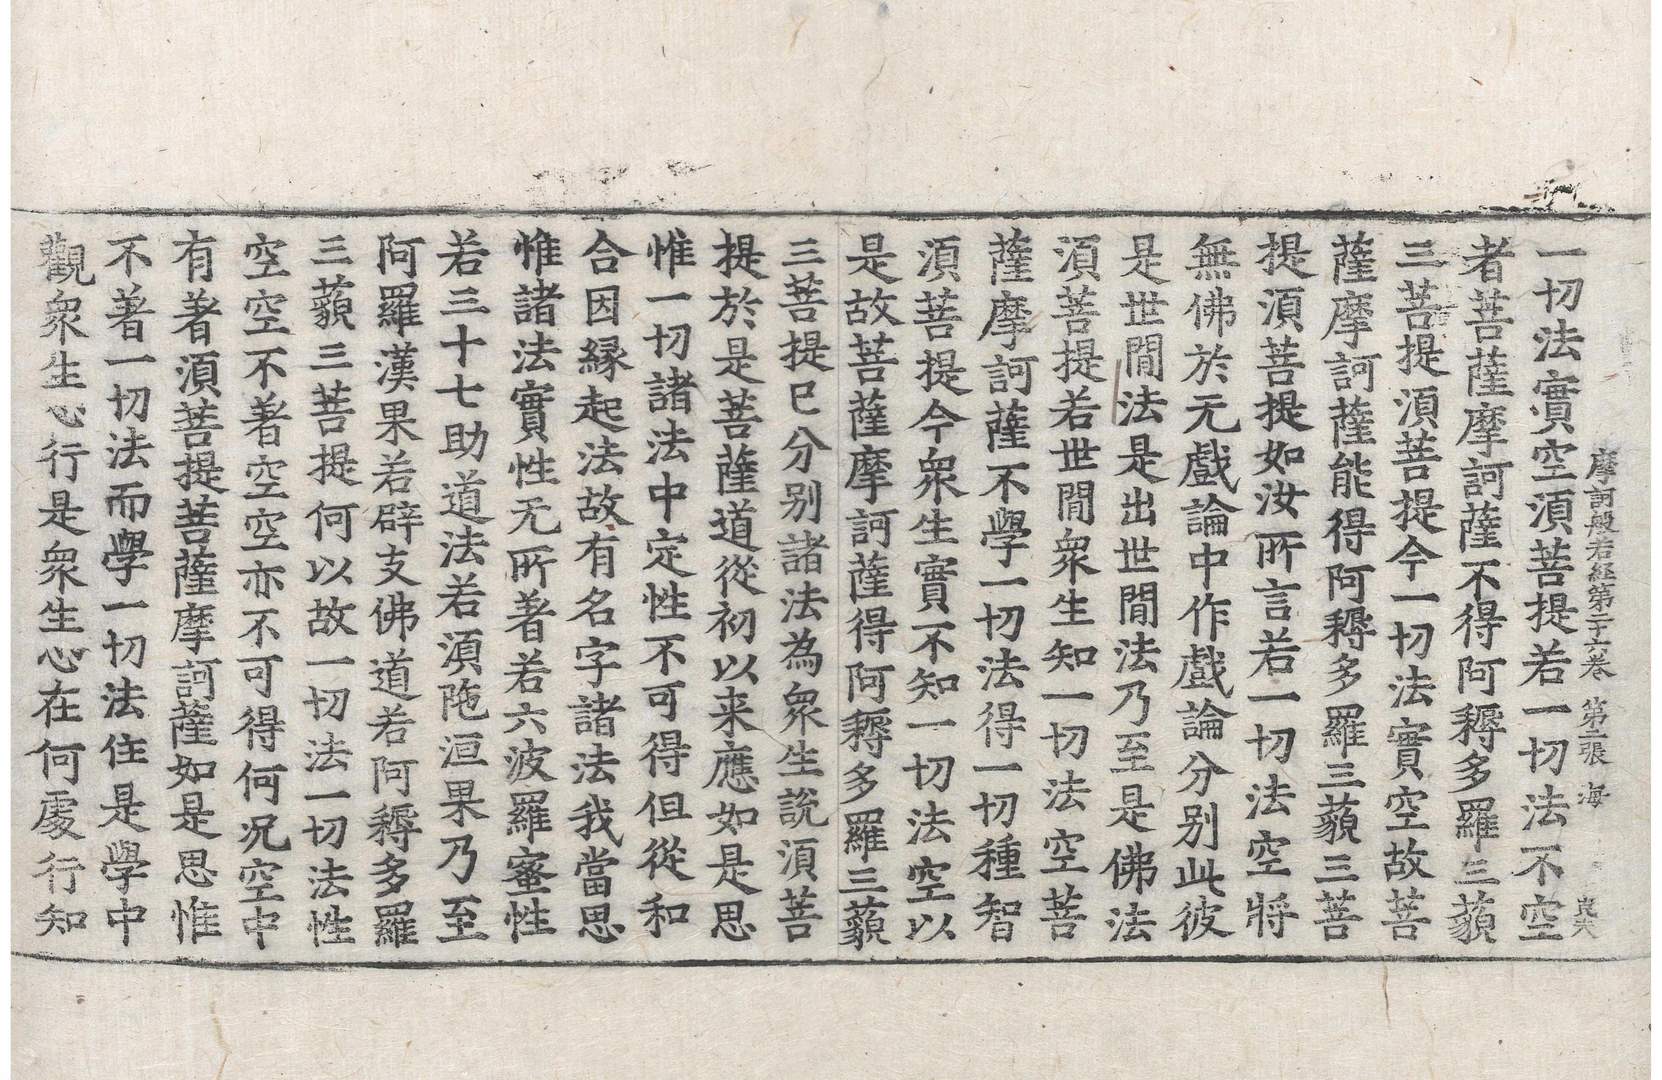 摩訶般若経第二十六卷 第二張 海
一切法實空須菩提若一切法不空
者菩薩摩訶薩不得阿耨多羅三藐
三菩提須菩提今一切法實空故菩
薩摩訶薩能得阿耨多羅三藐三菩
提須菩提如汝所言若一切法空將
無佛於无戲論中作戲論分别此彼
是世間法是出世間法乃至是佛法
須菩提若世間衆生知一切法空菩
薩摩訶薩不學一切法得一切種智
須菩提今衆生實不知一切法空以
是故菩薩摩訶薩得阿耨多羅三藐
三菩提已分别諸法為衆生說須菩
提於是菩薩道從初以来應如是思
惟一切諸法中定性不可得但從和
合因縁起法故有名字諸法我當思
惟諸法實性无所著若六波羅蜜性
若三十七助道法若須陁洹果乃至
阿羅漢果若辟支佛道若阿耨多羅
三藐三菩提何以故一切法一切法性
空空不著空空亦不可得何況空中
有著須菩提菩薩摩訶薩如是思惟
不著一切法而學一切法住是學中
觀衆生心行是衆生心在何處行知